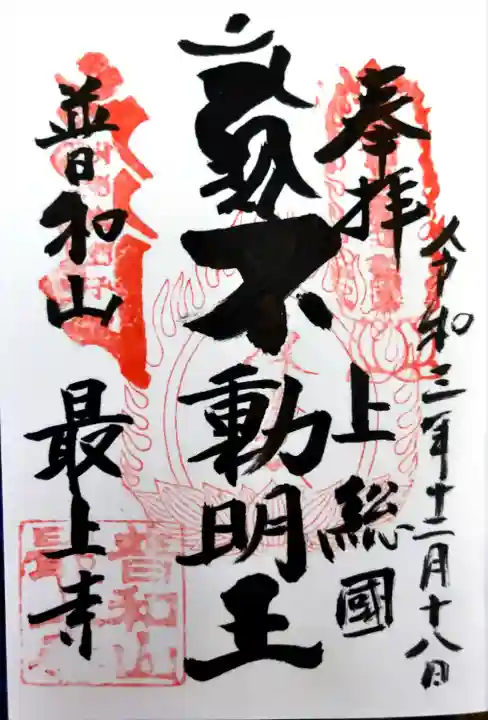 令和三年十二月十八日
奉拝
上総國
不動明王
普和山
最上寺
普和山